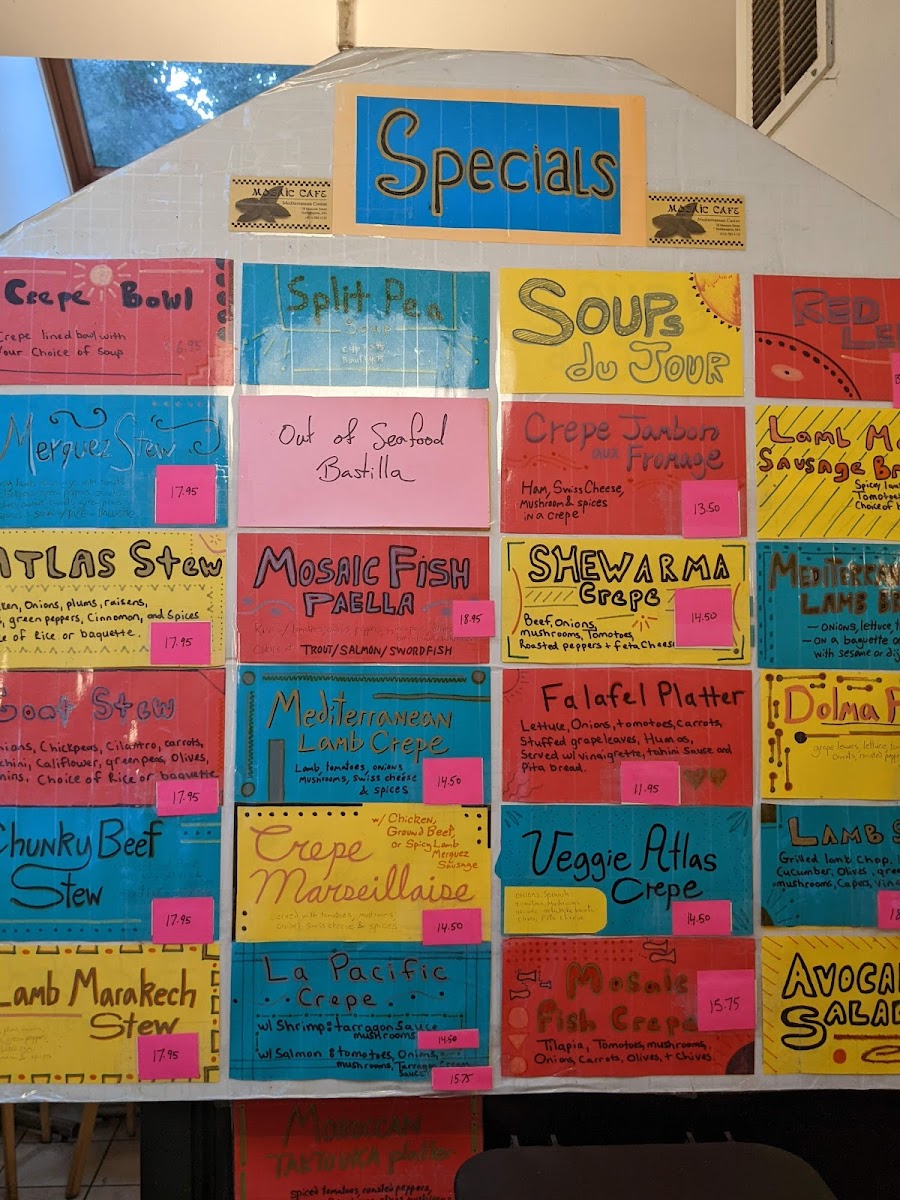 Specials
MOSAIC CAFE
Mediterranean Cuisine
MOSAIC CAFE
Mediterranean Cuisine
Crepe Bowl
Crepe lined bowl with
Your Choice of Soup
6.95
Split Pea
Soup
SOUPs
du JOUR
RED
Merguez Stew
17.95
Out of Seafood
Bastilla
Crepe Jambon
aux Fromage
Ham, Swiss Cheese,
mushroom & spices
in a crepe
13.50
Lamb
Sausage
Choice of
ATLAS Stew
Onions, plums, raisens,
green peppers, Cinnamon, and Spices
of Rice or baguette.
17.95
MOSAIC FISH
PAELLA
18.95
TROUT/SALMON/SWORDFISH
SHEWARMA
Crepe
Beef, Onions,
mushrooms, Tomatoes,
Roasted peppers + feta Cheese
14.50
LAMB
- ONIONS, lettuce,
- ON a baguette
with sesame or
Goat Stew
Chickpeas, Cilantro, carrots,
Califlower, green peas, Olives,
Choice of Rice or baguette
17.95
Mediterranean
Lamb Crepe
Lamb, tomatoes, onions
Mushrooms, swiss cheese
& spices
14.50
Falafel Platter
Lettuce, Onions, tomatoes, Carrots,
Stuffed grapeleaves, Humos,
Served w/ vinaigrette, tahini Sause and
Pita bread.
11.95
Dolma
grape leaves, lettuce,
Chunky Beef
Stew
17.95
Crepe
Marseillaise
w/ Chicken,
Ground Beef,
or Spicy Lamb
Merguez
Sausage
Served with tomatoes, mushrooms,
swiss cheese & spices
14.50
Veggie Atlas
Crepe
14.50
LAMB
Grilled lamb Chop.
Cucumber, Olives,
mushrooms, Capers,
Lamb Marakech
Stew
17.95
La Pacific
Crepe
w/ Shrimp: tarragon Sauce
mushrooms
14.50
w/ Salmon: tomatoes, Onions,
mushrooms, Tarragon Cream
Sauce
15.75
Mosaic
fish Crepe
15.75
Tilapia, Tomatoes, mushrooms,
Onions, Carrots, Olives, + Chives.
MOROCCAN
TAKTOUKA platter
spiced tomatoes, roasted peppers,